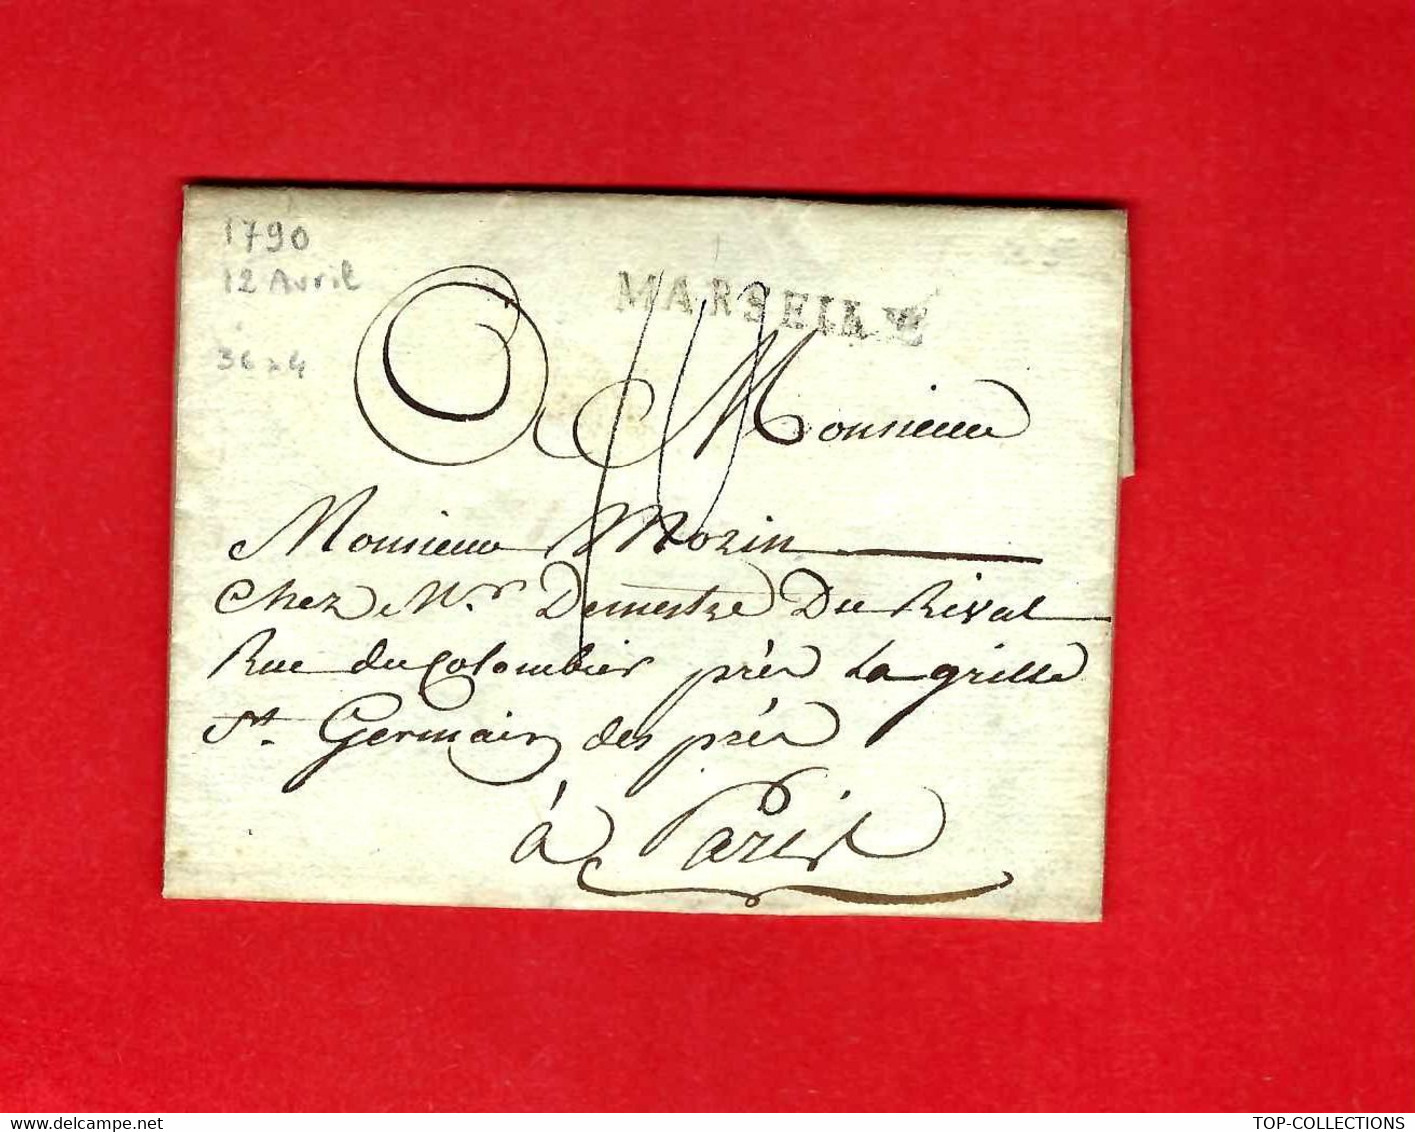 1790
12 Avril
MARSEILLE
A Monsieur
Monsieur Morin
Chez Mr. Demestre Du Rival
Rue du Colombier près La grille
St. Germain des près
à Paris
www.delcampe.net
TOP-COLLECTIONS